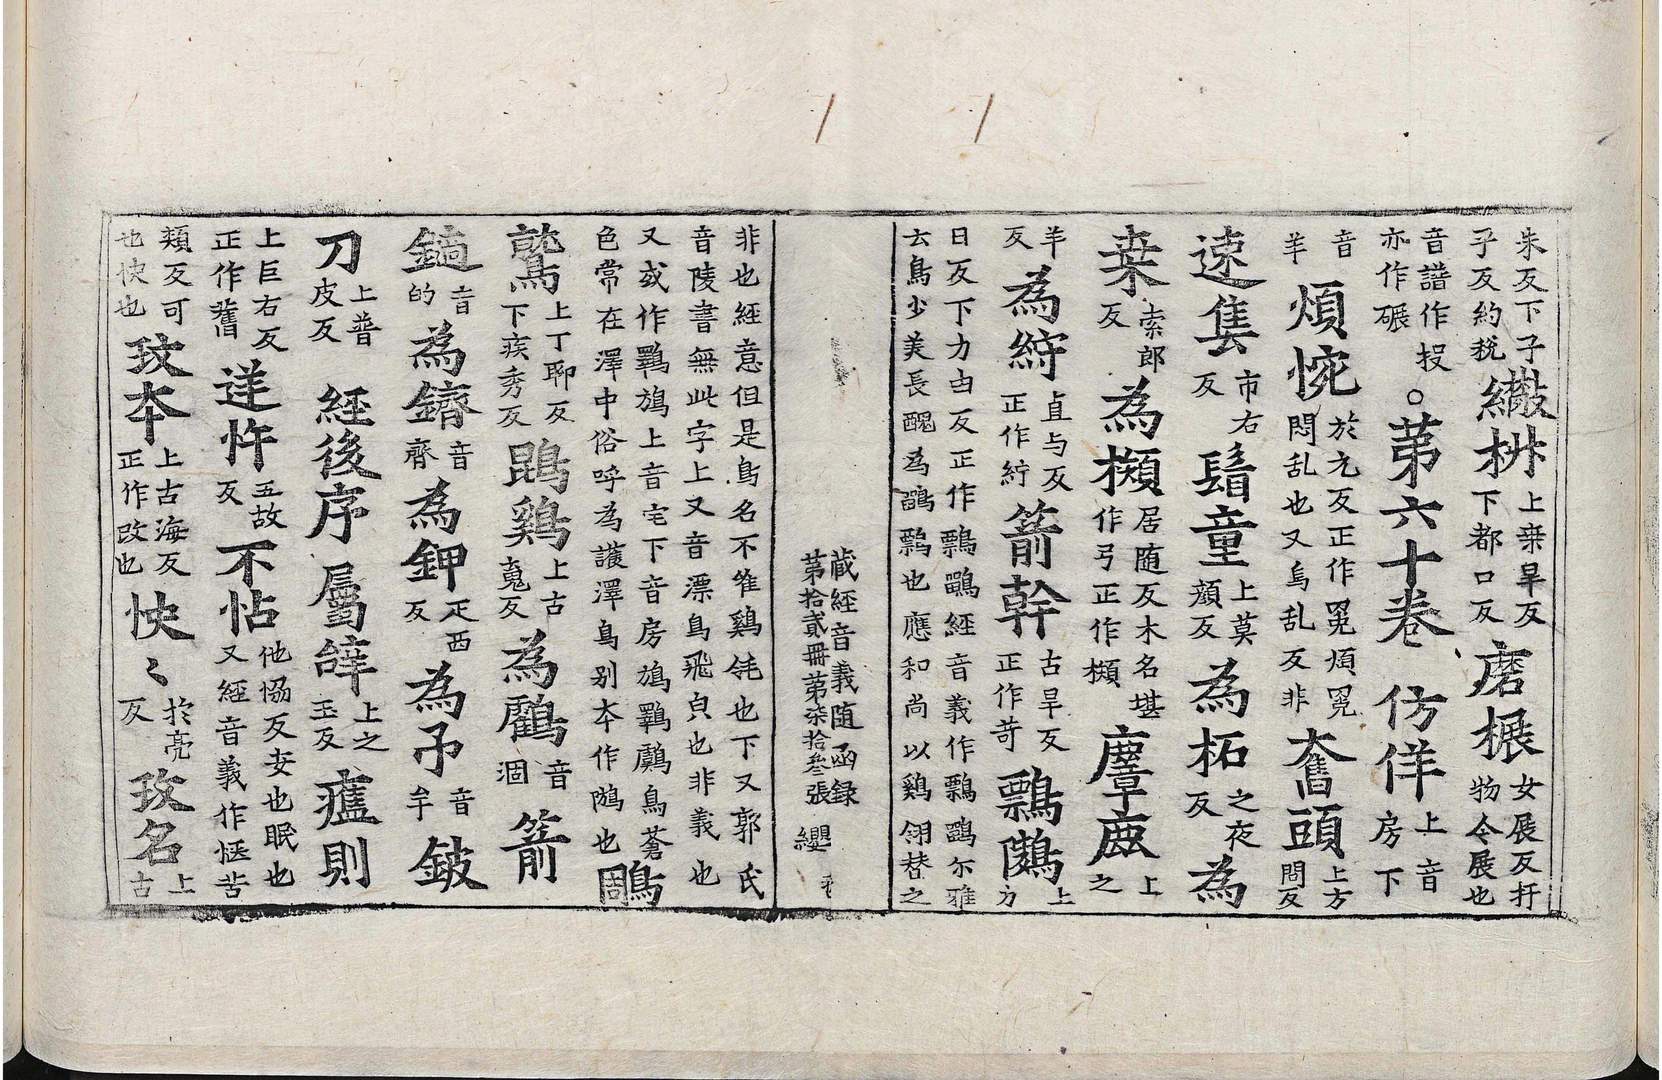 朱反下子孑反約税繖枓上桒旱反下都口反磨榐女展反扞物令展也
音譜作投亦作碾○第六十卷 仿佯上音房下
音羊煩惋於亢反正作冤煩冤悶乱也又烏乱反非奮頭上方問反
速隻市右反童上莫顔反為柘之夜反為
桒索郎反為居随反木名堪作弓正作麞鹿上之
羊反為紵直与反正作紵箭幹古旱反正作笴上方
日反下力由反正作經音義作尔雅云鳥少美長醜為也應和尚以鷄翎替之
藏經音義随函録
第拾貳冊第柒拾叄張 纓
非也經意但是鳥名不隹鷄毦也下又郭氏音陵書無此字上又音漂鳥飛皃也非義也
又或作鸅鴋上音宅下音房鴋鸅鸆鳥蒼色常在澤中俗呼為護澤鳥别夲作也鵰
鷲上丁聊反下疾秀反鵾鷄上古䰟反為鸖音涸箭
鏑音的為鑇音齊為鉀疋西反為矛音牟鈹
刀上普皮反 經後序 屬辝上之玉反 瘧則
上巨右反正作舊迕忤五故反不怗他恊反安也眠也又經音義作恎苦
頬反可也快也改夲上古海反正作改也怏〻於亮反改名上古